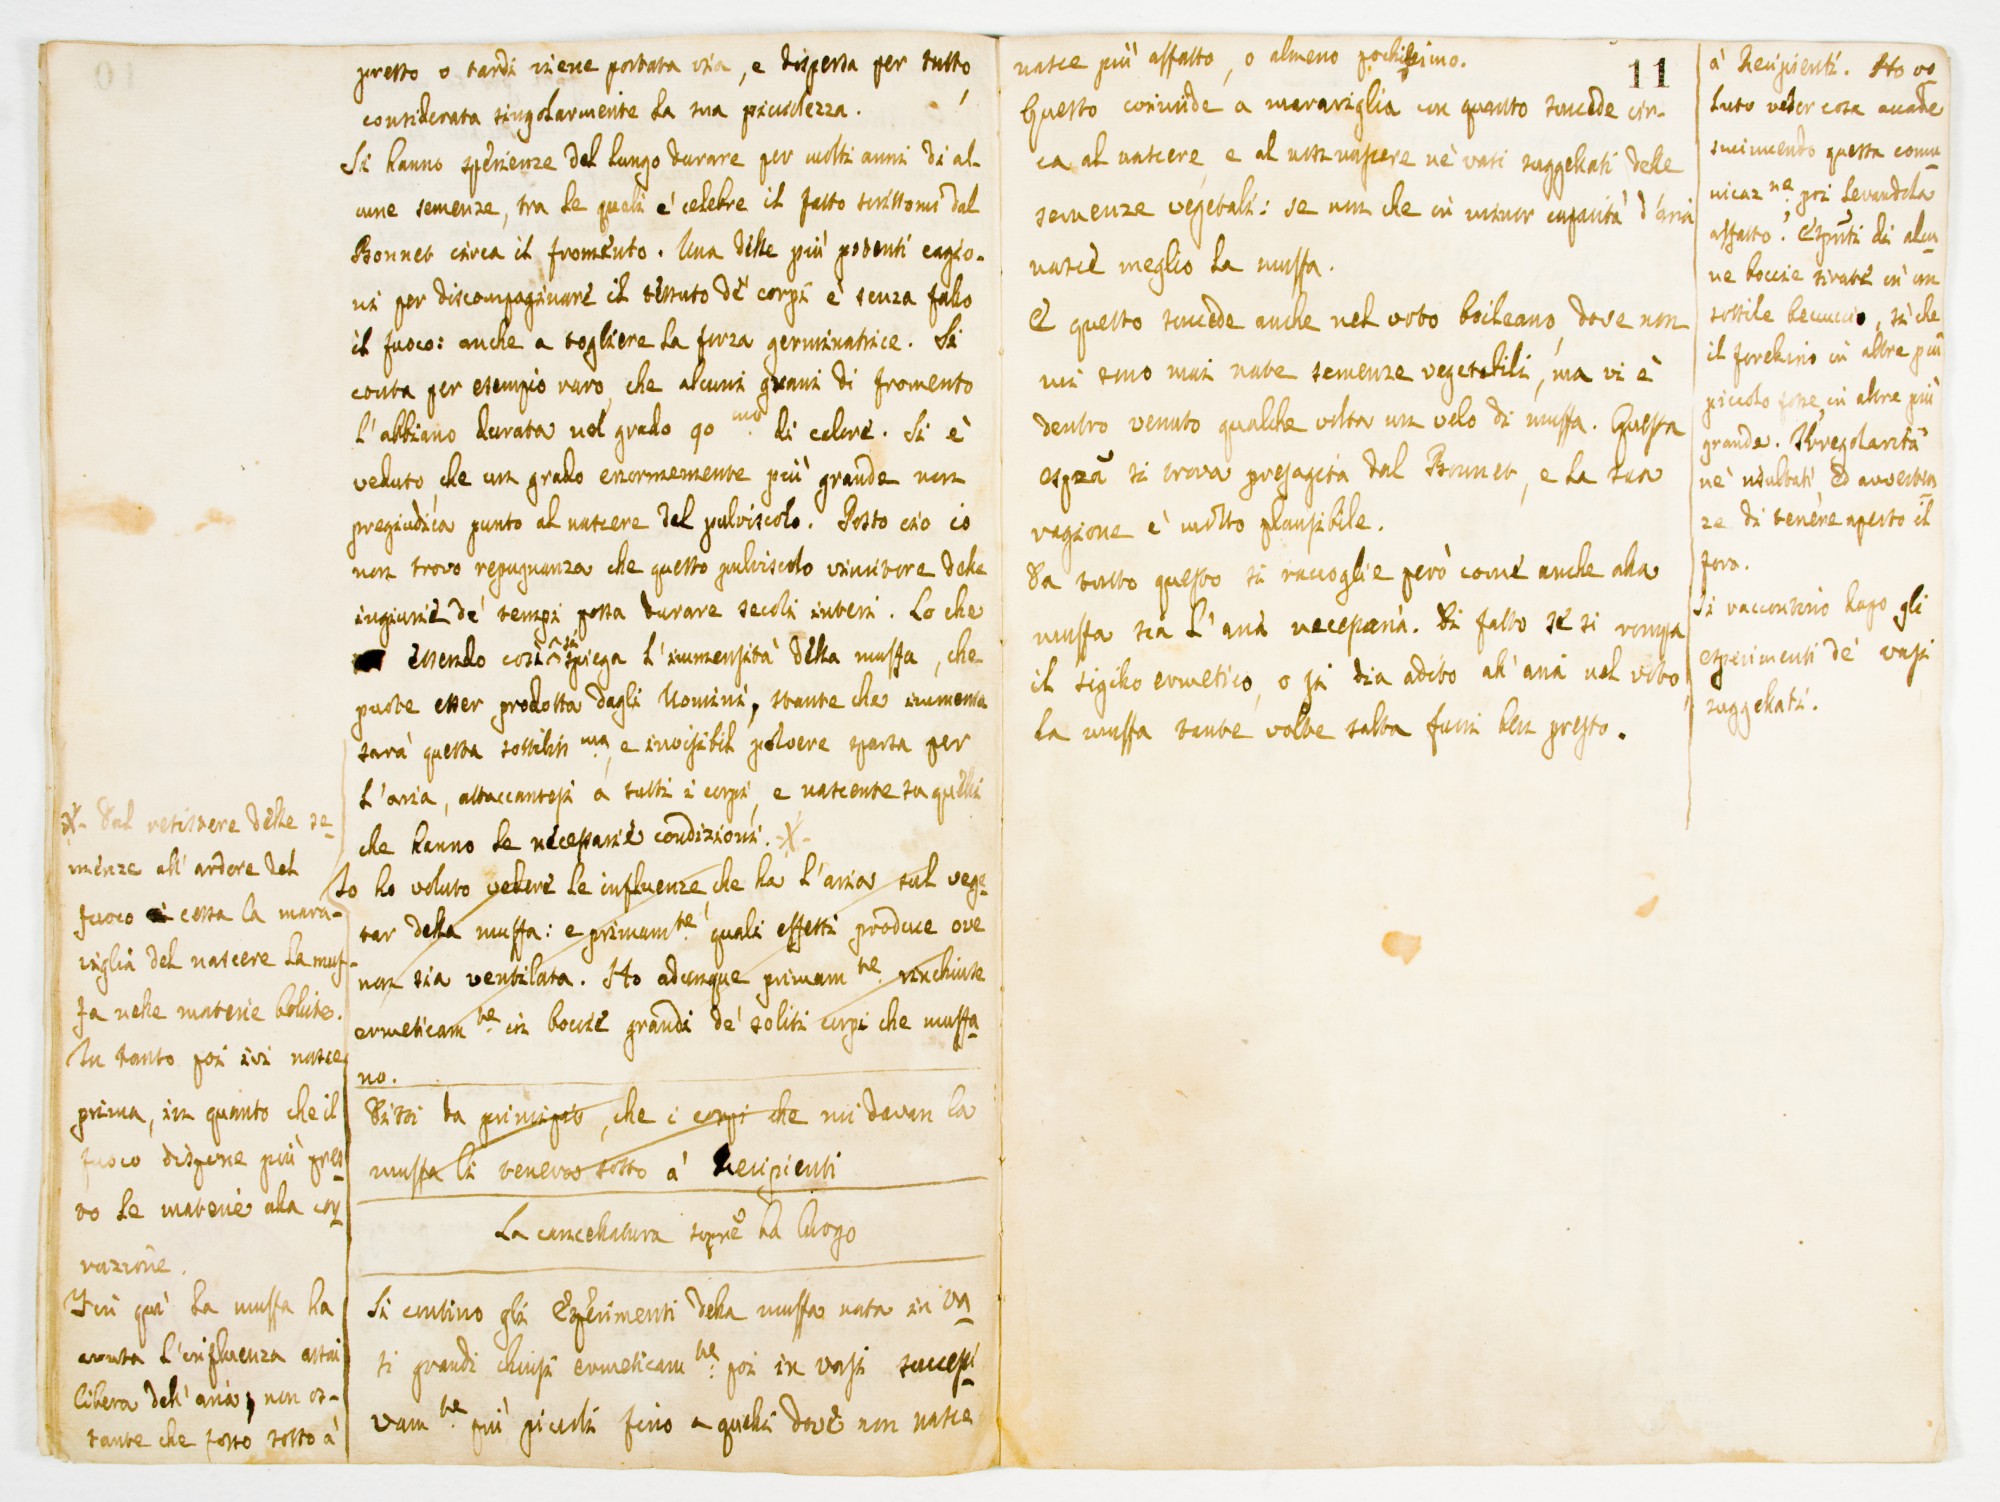 presto o tardi viene portata via, e dispersa per tutto,
considerata singolarmente la sua picciolezza.
Si hanno sperienze del lungo durare per molti anni di al-
cune semenze, tra le quali è celebre il fatto scrittomi dal
Bonnet circa il fromento. Una delle più potenti cagio-
ni per discompaginare il tessuto de' corpi è senza fallo
il fuoco: anche a togliere la forza germinatrice. Si
conta per esempio raro, che alcuni grani di fromento
l'abbiano durata nel grado 90 mo di calore. Si è
veduto, che un grado enormemente più grande non
pregiudica punto al nascere del pulviscolo. Posto ciò io
non trovo repugnanza che questo pulviscolo vincitore delle
ingiurie de' tempi possa durare secoli interi. Lo che
essendo così si spiega l'immensità della muffa, che
puote esser prodotta dagli Uomini, stante che immensa
sarà questa sottiliss ma, e invisibil polvere sparsa per
l'aria, attaccantesi a tutti i corpi, e nascente su quelli
che hanno le necessarie condizioni. -X-
Io ho voluto vedere le influenze, che ha l'aria sul vege-
tar della muffa: e primam te quali effetti produce ove
non sia ventilata. Ho adunque primam te rinchiuse
ermeticam te in boccie grandi de' soliti corpi che muffa-
no.
Dissi da principio, che i corpi che mi davan la
muffa li tenevo sotto a' Recipienti
La cancellatura sopre ha luogo
Si contino gli Esperimenti della muffa nata in va-
si grandi chiusi ermeticam te poi in vasi successi-
vam te più piccoli fino a quelli dove non nasce
-X- Dal resistere delle se-
menze all'ardore del
fuoco cessa la mara-
viglia del nascere la muf-
fa nelle materie bollite.
In tanto poi ivi nasce
prima, in quanto che il
fuoco dispone più pres-
to le materie alla cor-
ruzione.
Fin quì la muffa ha
avuta l'influenza assai
libera dell'aria, non os-
tante che fosse sotto a'
11
nasce più affatto, o almeno pochissimo.
Questo coincide a maraviglia con quanto succede cir-
ca al nascere, e al non nascere ne' vasi suggellati delle
semenze vegetali: se non che in minor capacità d'aria
nasce meglio la muffa.
E questo succede anche nel voto boileano, dove non
mi sono mai nate semenze vegetabili, ma vi è
dentro venuto qualche volta un velo di muffa. Questa
espza si trova presagita dal Bonnet, e la sua
ragione è molto plausibile.
Da tutto questo si raccoglie però come anche alla
muffa sia l'aria necessaria. Di fatto se si rompa
il sigillo ermetico, o si dia adito all'aria nel voto
la muffa tante volte salta fuori ben presto.
a' Recipienti. Ho vo-
luto veder cosa accade
sminuendo questa comu-
nicaz ne, poi levandola
affatto. Esprti di alcu-
ne boccie tirate in un
sottile beccuccio, sì che
il forellino in altre più
piccolo fosse, in altre più
grande. Irregolarità
ne' risultati ed avverten-
ze di tenere aperto il
foro.
Si raccontino dopo gli
esperimenti de' vasi
suggellati.